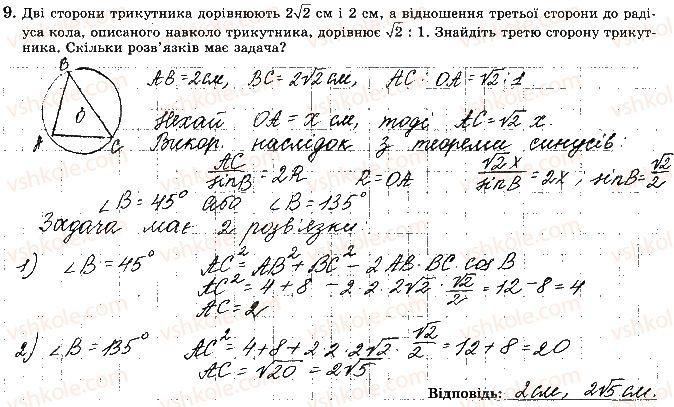 9. Дві сторони трикутника дорівнюють 2√2 см і 2 см, а відношення третьої сторони до раді-
уса кола, описаного навколо трикутника, дорівнює √2 : 1. Знайдіть третю сторону трикут-
ника. Скільки розв'язків має задача?
B
O
A
C
AB = 2см, BC = 2√2 см, AC : OA = √2 : 1
Нехай OA = x см, тоді AC = √2 x.
Викор. наслідок з теореми синусів:
AC/sinB = 2R R = OA √2x/sinB = 2x ; sinB = √2/2
∠B = 45° або ∠B = 135°
Задача має 2 розв'язки.
1) ∠B = 45° AC² = AB² + BC² − 2AB·BC·cosB
AC² = 4 + 8 − 2·2·2√2·√2/2 = 12 − 8 = 4
AC = 2
2) ∠B = 135° AC² = 4 + 8 + 2·2·2√2·√2/2 = 12 + 8 = 20
AC = √20 = 2√5
Відповідь: 2см, 2√5 см.
vshkole.com